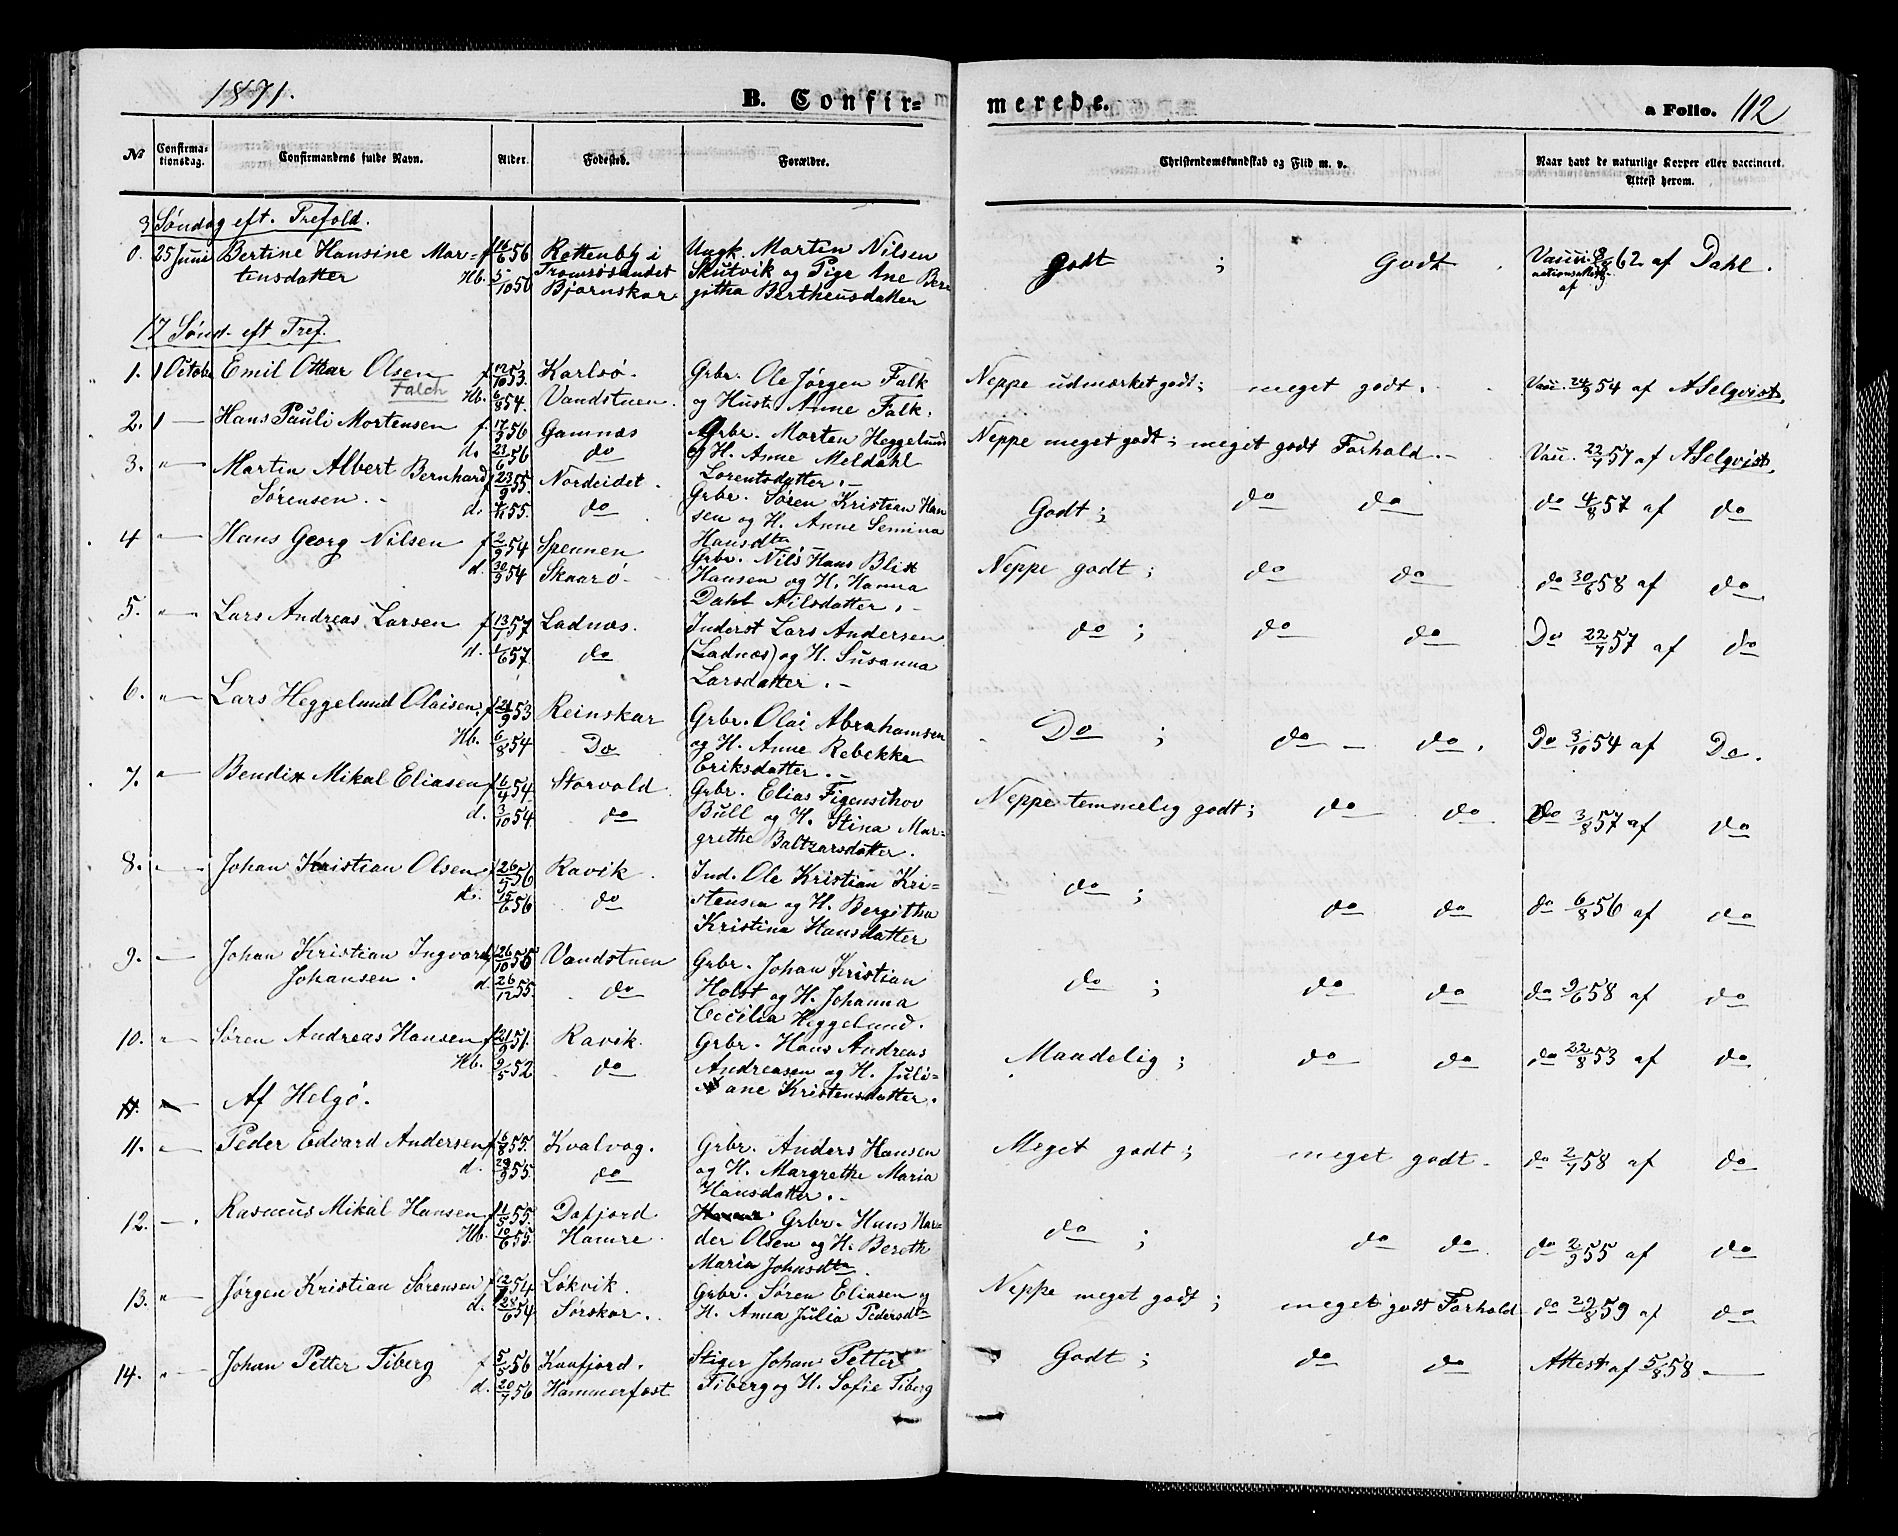 1871.
B. Confir=
merede.
a Folio. 112
No
Confirma-
tionsdag.
Confirmandens fulde Navn.
Alder.
Fødested.
Forældre.
Christendomskundskab og Flid m. v.
Naar havt de naturlige Kopper eller vaccineret.
Attest herom.
3 Søndag eft. Trefold.
0. 25 Juni Bertine Hansine Mar- f 16/6 56 Rottenby i Ungk. Martin Nilsen godt ; Godt . 62 af Dahl.
tensdatter Hb. 5/10 56 Tromsøsundet Skutvik og Pige Ane Ber
Bjørnskar githa Bertheusdatter
17 Sønd. eft Tref.
1. 1 Octobr Emil Ottar Olsen f 12/10 53. Karlsø. Grbr. Ole Jørgen Falk Neppe udmærket godt; meget godt. Vacc. 24/9 54 af A Selqvist.
Falch Hb. 6/8 54. Vandstuen. og Hust. Anne Falk.
2. 1 — Hans Pauli Mortensen f. 17/3 56 Gamnæs Grbr. Morten Heggelund Neppe meget godt; meget godt Forhold. Vacc. 22/7 57 af A Selqvist.
d. 23/6 56 do og H. Anne Meldahl
Lorentsdatter.
3. " — Martin Albert Bernhard f 23/9 55. Nordeidet. Grbr. Søren Kristian Han Godt; do do do 4/8 57 af do
Sørensen. d. 55. do sen og H. Anne Semina
Hansdtr
4 " — Hans Georg Nilsen f 2/9 54 Spennen Grbr. Nils Hans Blix Neppe godt; do do do 30/6 58 af do
d. 30/9 54 Skaarø Hansen og H. Hanna
Dahl Nilsdatter.
5. " — Lars Andreas Larsen f 13/1 57 Ladnæs. Inderst Lars Andersen do ; do do Do 22/7 57 af do
d. 1/6 57. do (Ladnæs) og H. Susanna
Larsdatter.
6. " — Lars Heggelund Olaisen. f 21/9 53 Reinskar Grbr. Olai Abrahamsen Do ; do do. Do 3/10 54 af Do.
Hb. 6/8 54 Do og H. Anne Rebekka
Eriksdatter.
7. " — Bendix Mikal Eliasen f 6/4 54. Storvold. Grbr. Elias Figenschov Neppe temmelig godt; do do do 3/8 57 af do
d. 3/10 54. do Bull og H. Stina Mar-
grethe Baltzarsdatter.
8. — Johan Kristian Olsen f 26/5 56 Ravik. Ind. Ole Kristian Kri- do ; do do do 6/8 56 af do
d. 15/6 56 do stensen og H. Bergitha
Kristina Hansdatter
9. — Johan Kristian Ingvard f 26/10 55 Vandstuen Grbr. Johan Kristian do ; do do do 9/6 58 af do
Johansen. d. 26/12 55. do Holst og H. Johanna
Cecilia Heggelund.
10. " Søren Andreas Hansen f 21/9 51. Ravik. Grbr. Hans Andreas Maadelig; do do do 22/8 53 af do
Hb. 9/5 52 do Andreasen og H. Juli-
ane Kristensdatter.
11. Af Helgø.
11. " — Peder Edvard Andersen f 6/8 55. Kvalvog. Grbr. Anders Hansen Meget godt; meget godt. do 2/7 58 af do
d. 29/9 55. do og H. Margrethe Maria
Hansdatter.
12. — Rasmus Mikal Hansen f 11/5 55. Dafjord. Grbr. Hans Har- do ; do do do 2/9 55 af do
Hb. 10/6 55. Hamre. der Olsen og H. Bereth
Maria Johnsdtr.
13. " — Jørgen Kristian Sørensen f 12/1 54 Løkvik. Grbr. Søren Eliasen og Neppe meget godt; meget godt Forhold do 29/8 59 af do
d. 28/6 54 Sørskar. H. Anna Julia Pedersdtr
14. " — Johan Petter Tiberg f 5/5 56 Kaafjord. Stiger Johan Petter Godt; do do Attest af 5/8 58.
d. 20/7 56 Hammerfest Tiberg og H. Sofie Tiberg